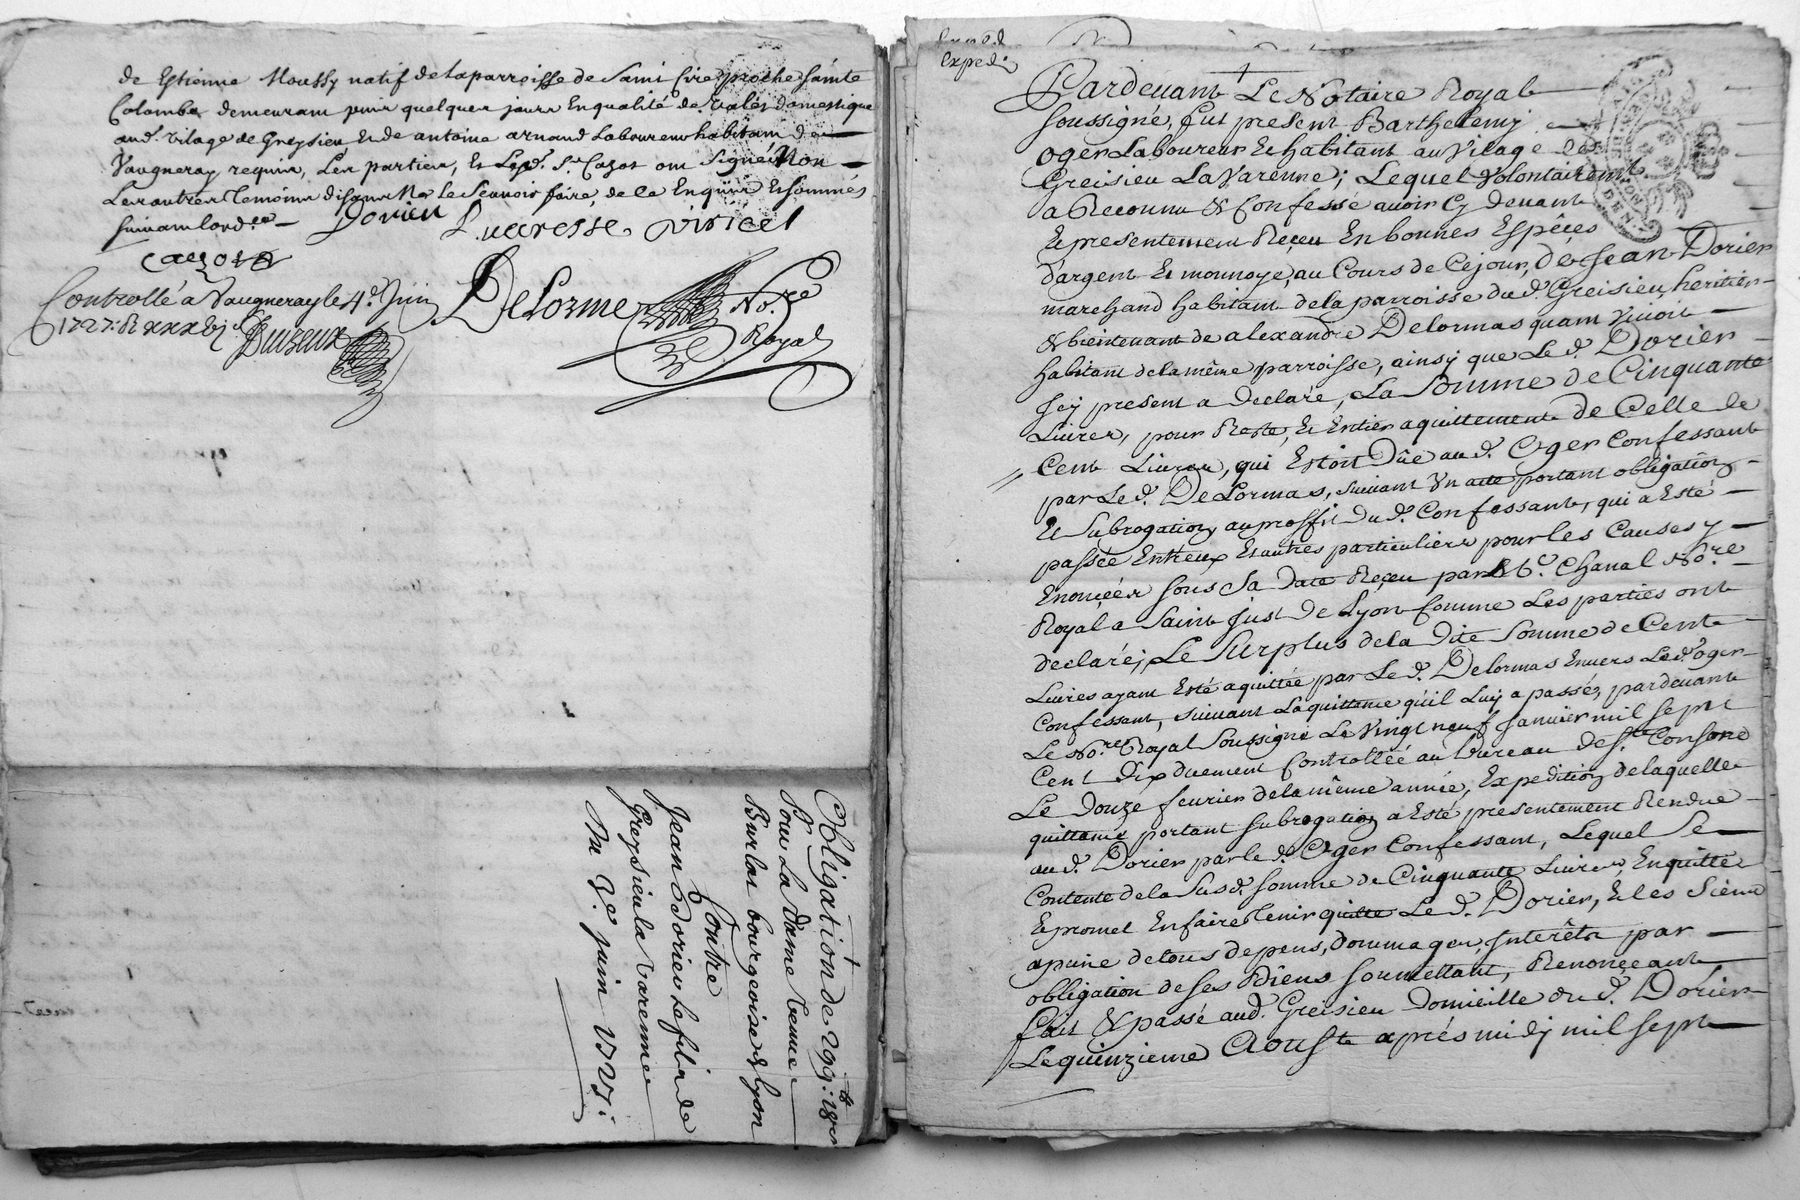 de Estienne Moussy natif de la parroisse de Saint Cire proche Sainte
Colombe demeurant pour quelques jours En qualité de valet domestique
aud. vilage de Greysieu Et de antoine arnaud Laboureur habitant de
Vaugneray requis, Les parties, Et Led. Sr. Cazot ont Signé Non
Les autres Temoins disant Ne le Scavoir faire, de ce Enquis Et sommés
suivant lord.ce
Dorier Lucresse viricel
Cazot
Controllé a Vaugneray le 4e. Juin
1727. R xxxvj s
DeLorme No.re
Royal
Obligation de 299: 18
Pour La Dame Veuve
Burlat bourgeoise de Lyon
Contre
Jean Dorier La fils de
Greysieu la Varenne
Du 3e. juin 1727:
Exped.
Pardevant Le Notaire Royal
Soussigné, fut present Barthelemy
oger Laboureur Et habitant au Village de
Greisieu La Varenne; Lequel Volontairemt.
a Reconnu & Confessé avoir Cy devant
Et presentement Reçeu En bonnes Espèces
d'argent Et monnoye, au Cours de Cejour, de Jean Dorier
marchand habitant de la parroisse dud. Greisieu, heritier
& bientenant de alexandre Delormas quant vivoit
habitant de la même parroisse, ainsy que Le d. Dorier
Jcy present a declaré, La Somme de Cinquante
Livres, pour Reste, Et Entier aquittement de Celle de
Cent Livres, qui Estoit Dûe aud. Oger Confessant
par Le d. DeLormas, suivant Un acte portant obligation
Et Subrogation, au proffit Dud. Confessant, qui a Esté
passée Entreux Et autres particuliers pour les Causes y
Enoncées sous Sa Date Reçeu par Chanal No.re
Royal a Saint Just de Lyon Comme Les parties ont
declaré; Le Surplus de la Dite Somme de Cent
Livres ayant Esté aquittée par Le d. Delormas Envers Led. oger
Confessant, suivant La quittance qu'il Luy a passée, pardevant
Le No.re Royal Soussigné Le Vingt neuf Janvier mil sept
Cent Dix duement Controllée au Bureau de S.te Consorce
Le Douze fevrier de la même année, Expedition de laquelle
quittance portant Subrogation a Esté presentement Rendue
au d. Dorier par le d. Oger Confessant, Lequel Se
Contente de la Susd. somme de Cinquante Livres, En quitte
Et promet En faire Tenir quitte Le d. Dorier, Et les Siens
a peine de tous depens, dommages, Interêts par
obligation de ses Biens soumettant, Renonçeant
fait & passé aud. Greisieu Domicille du d. Dorier
Le quinzieme Aoust après midy mil sept